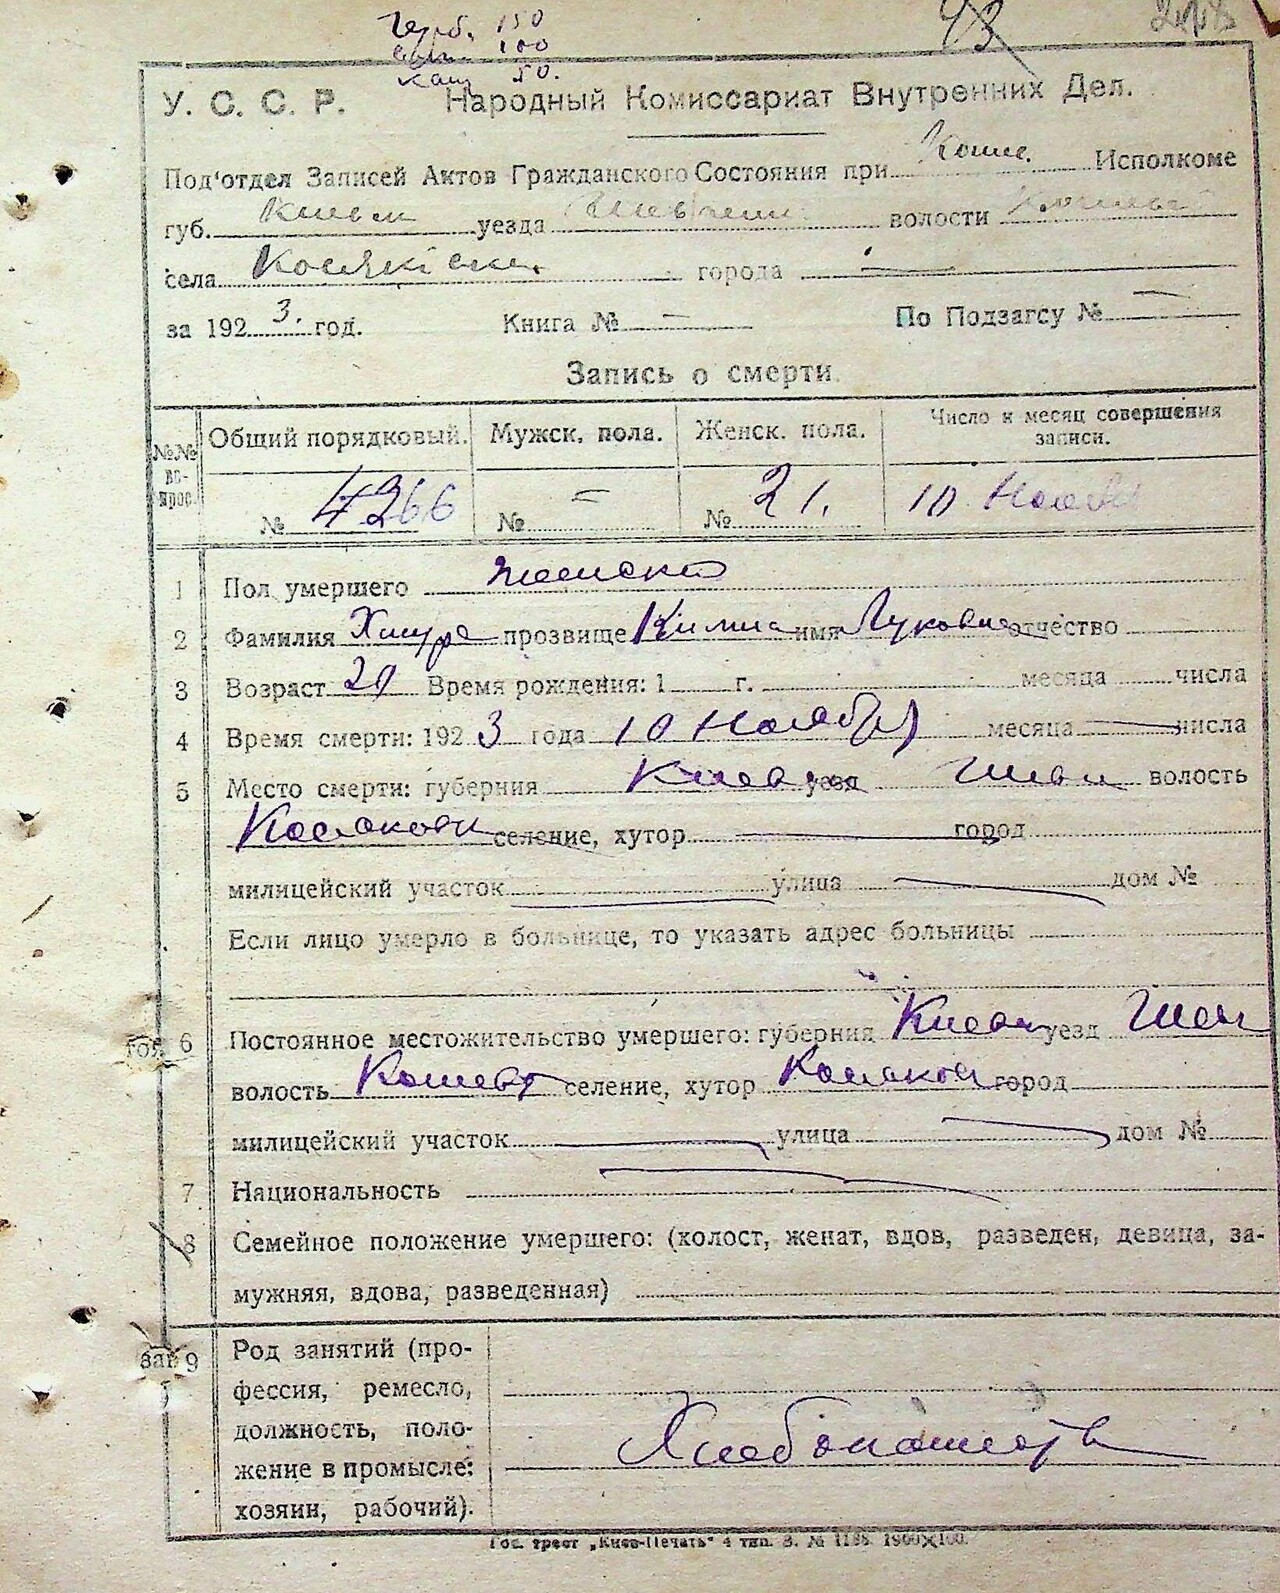 Герб. 150
100
Канц 50.
43
У. С. С. Р. Народный Комиссариат Внутренних Дел.
Под'отдел Записей Актов Гражданского Состояния при Коше. Исполкоме
губ. Киевск уезда Шевченк волости Кошев
села города —
за 192 3. год. Книга № — По Подзагсу № —
Запись о смерти.
№№ вопрос.
Общий порядковый. Мужск. пола. Женск. пола. Число и месяц совершения записи.
№ 4266 № = № 21. 10 Ноября
1 Пол умершего женско
2 Фамилия прозвище имя Луковна отчество
3 Возраст 20 Время рождения: 1 г. месяца числа
4 Время смерти: 192 3 года 10 Ноября месяца — числа
5 Место смерти: губерния Киев уезд Шевч волость
селение, хутор — город
милицейский участок — улица — дом №
Если лицо умерло в больнице, то указать адрес больницы
6 Постоянное местожительство умершего: губерния Киевск уезд Шев
волость Кошев селение, хутор город
милицейский участок — улица — дом №
7 Национальность —
8 Семейное положение умершего: (холост, женат, вдов, разведен, девица, за-
мужняя, вдова, разведенная)
9 Род занятий (про-
фессия, ремесло,
должность, поло-
жение в промысле:
хозяин, рабочий).
Хлебопашеств
Гос. трест „Киев-Печать" 4 тип. З. № 1188. 1900×100.